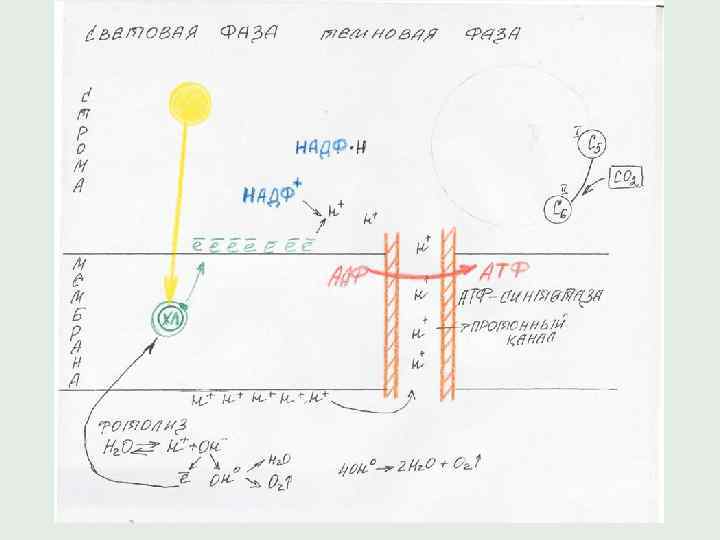 СВЕТОВАЯ ФАЗА ТЕМНОВАЯ ФАЗА
СТРОМА
НАДФ·Н
НАДФ+
H+ H+
I C5
CO2
II C6
ē ē ē ē ē ē ē
МЕМБРАНА
ХЛ
АДФ
АТФ
H+
H+
H+
H+
АТФ-СИНТЕТАЗА
ПРОТОННЫЙ
КАНАЛ
H+ H+ H+ H+ H+
ФОТОЛИЗ
H2O ⇄ H+ + OH-
ē OH0 H2O
O2↑
4OH0 → 2H2O + O2↑